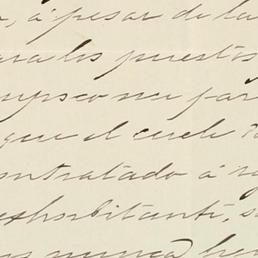 , á pesar de la
ra los puestos
mpoco me par
que el cuele
ontratado á
exhorbitante, s
nunca